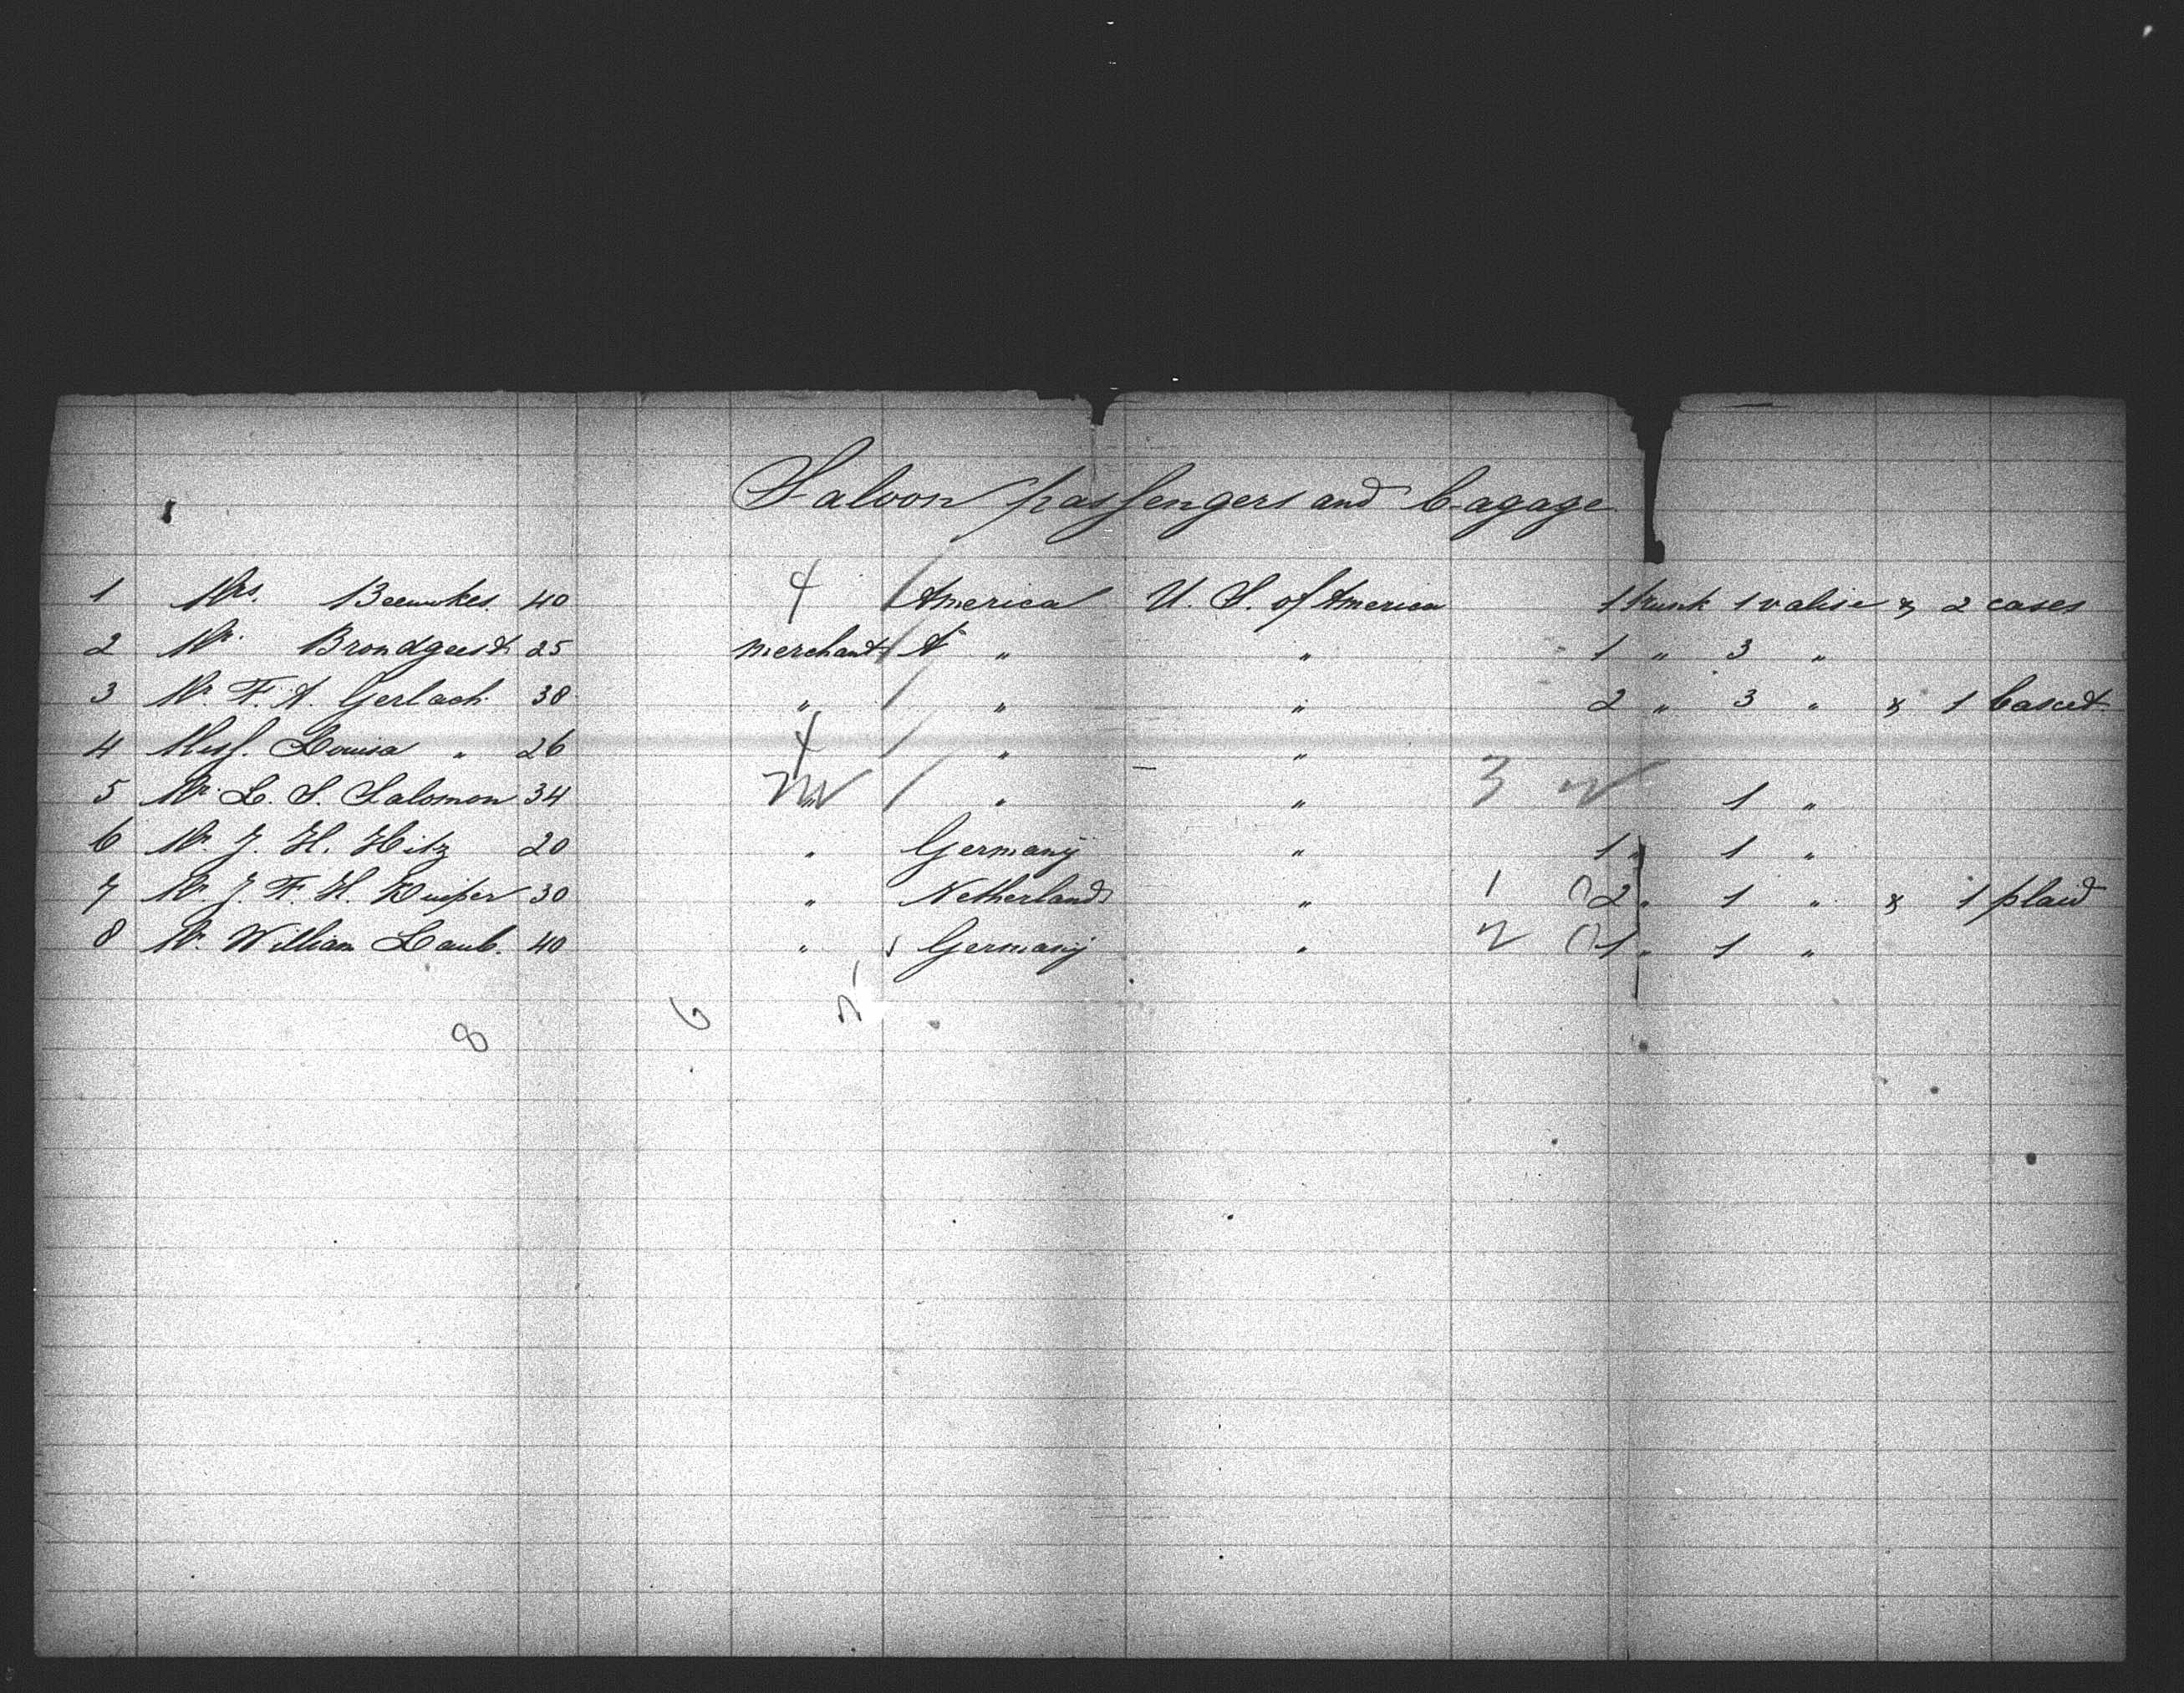 Saloon passengers and bagage
1 Mrs. Beeuwkes. 40 4 America U. S. of America 1 trunk 1 valise & 2 cases
2 Mr. Brondgeest 25 merchant A " " 1 " 3 "
3 Mr. F. A. Gerlach 38 " " " 2 " 3 " & 1 bascet
4 Miss. Louisa " 26 4 " "
5 Mr. L. S. Salomon 34 " " " 3 1 "
6 Mr. J. H. Hitz 20 " Germany " 1 " 1 "
7 Mr. J. F. H. Kuiper 30 " Netherlands " 1 2 " 1 " & 1 plaid
8 Mr. William Laub. 40 " Germany " 2 1 " 1 "
8 6 2